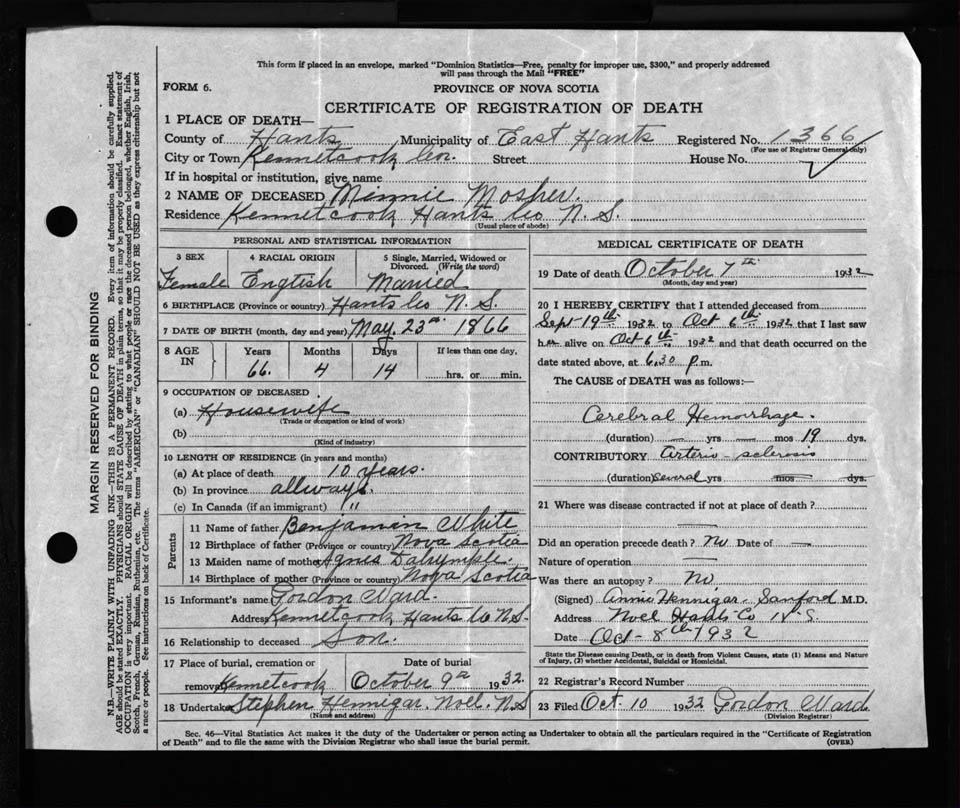 This form if placed in an envelope, marked "Dominion Statistics—Free, penalty for improper use, $300," and properly addressed
will pass through the Mail "FREE"
FORM 6.
PROVINCE OF NOVA SCOTIA
CERTIFICATE OF REGISTRATION OF DEATH
1 PLACE OF DEATH—
County of Hants Municipality of East Hants Registered No. 1366
(For use of Registrar General only)
City or Town Kennetcook Cor. Street House No.
If in hospital or institution, give name
2 NAME OF DECEASED Minnie Mosher.
Residence Kennetcook Hants Co N. S.
(Usual place of abode)
PERSONAL AND STATISTICAL INFORMATION
3 SEX 4 RACIAL ORIGIN 5 Single, Married, Widowed or
Divorced. (Write the word)
Female English Married
6 BIRTHPLACE (Province or country) Hants Co N. S.
7 DATE OF BIRTH (month, day and year) May 23rd 1866
8 AGE IN Years Months Days If less than one day,
66. 4 14 hrs. or min.
9 OCCUPATION OF DECEASED
(a) Housewife
(Trade or occupation or kind of work)
(b)
(Kind of industry)
10 LENGTH OF RESIDENCE (in years and months)
(a) At place of death 10 years.
(b) In province allways.
(c) In Canada (if an immigrant) "
Parents
11 Name of father Benjamin White
12 Birthplace of father (Province or country) Nova Scotia
13 Maiden name of mother Agnes Dalrymple.
14 Birthplace of mother (Province or country) Nova Scotia
15 Informant's name Gordon Ward.
Address Kennetcook Hants Co N.S.
16 Relationship to deceased Son.
17 Place of burial, cremation or Date of burial
removal Kennetcook October 9th 1932.
18 Undertaker Stephen Hennigar. Noel. N.S
(Name and address)
MEDICAL CERTIFICATE OF DEATH
19 Date of death October 7th 1932
(Month, day and year)
20 I HEREBY CERTIFY that I attended deceased from
Sept 19th 1932 to Oct 6th 1932 that I last saw
her alive on Oct 6th 1932 and that death occurred on the
date stated above, at 6.30 p.m.
The CAUSE of DEATH was as follows:—
Cerebral Hemorrhage.
(duration) — yrs — mos 19 dys.
CONTRIBUTORY Arterio-sclerosis
(duration) several yrs — mos — dys.
21 Where was disease contracted if not at place of death?
—
Did an operation precede death? no Date of —
Nature of operation —
Was there an autopsy? no.
(Signed) Annie Hennigar-Sanford M.D.
Address Noel Hants Co N.S.
Date Oct-8th 1932
State the Disease causing Death, or in death from Violent Causes, state (1) Means and Nature
of Injury, (2) whether Accidental, Suicidal or Homicidal.
22 Registrar's Record Number
23 Filed Oct. 10 1932 Gordon Ward
(Division Registrar)
Sec. 46—Vital Statistics Act makes it the duty of the Undertaker or person acting as Undertaker to obtain all the particulars required in the "Certificate of Registration
of Death" and to file the same with the Division Registrar who shall issue the burial permit.
(OVER)
MARGIN RESERVED FOR BINDING
N.B.—WRITE PLAINLY WITH UNFADING INK—THIS IS A PERMANENT RECORD. Every item of information should be carefully supplied.
AGE should be stated EXACTLY. PHYSICIANS should STATE CAUSE OF DEATH in plain terms, so that it may be properly classified. Exact statement of
OCCUPATION is very important. RACIAL ORIGIN will be described by stating to what people or race the deceased person belonged, whether English, Irish,
Scotch, French, German, Russian, Ruthenian, etc. The terms "AMERICAN" or "CANADIAN" SHOULD NOT BE USED as they express citizenship but not
a race or people. See instructions on back of Certificate.